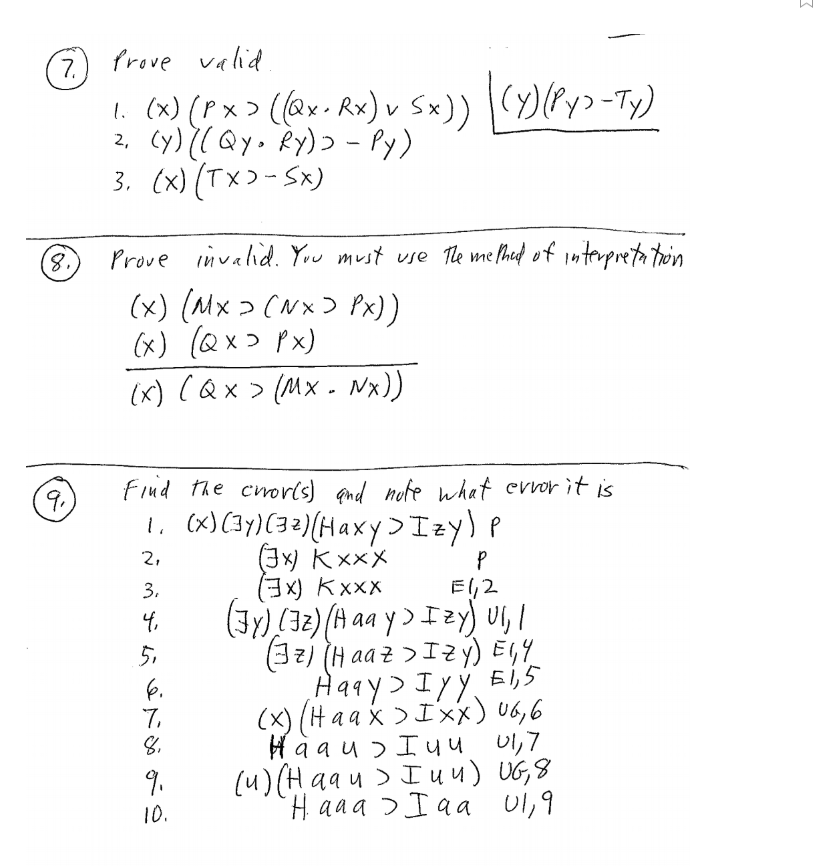 7. Prove valid
1. (x)(Px ⊃ ((Qx · Rx) v Sx)) | (y)(Py ⊃ -Ty)
2. (y)((Qy · Ry) ⊃ - Py)
3. (x)(Tx ⊃ - Sx)
8. Prove invalid. You must use the method of interpretation
(x) (Mx ⊃ (Nx ⊃ Px))
(x) (Qx ⊃ Px)
(x) (Qx ⊃ (Mx · Nx))
9. Find the error(s) and note what error it is
1. (x)(∃y)(∃z)(Haxy ⊃ Izy) P
2. (∃x) Kxxx P
3. (∃x) Kxxx EI,2
4. (∃y)(∃z)(Haay ⊃ Izy) UI,1
5. (∃z)(Haaz ⊃ Izy) EI,4
6. Haay ⊃ Iyy EI,5
7. (x)(Haax ⊃ Ixx) UG,6
8. Haau ⊃ Iuu UI,7
9. (u)(Haau ⊃ Iuu) UG,8
10. Haaa ⊃ Iaa UI,9